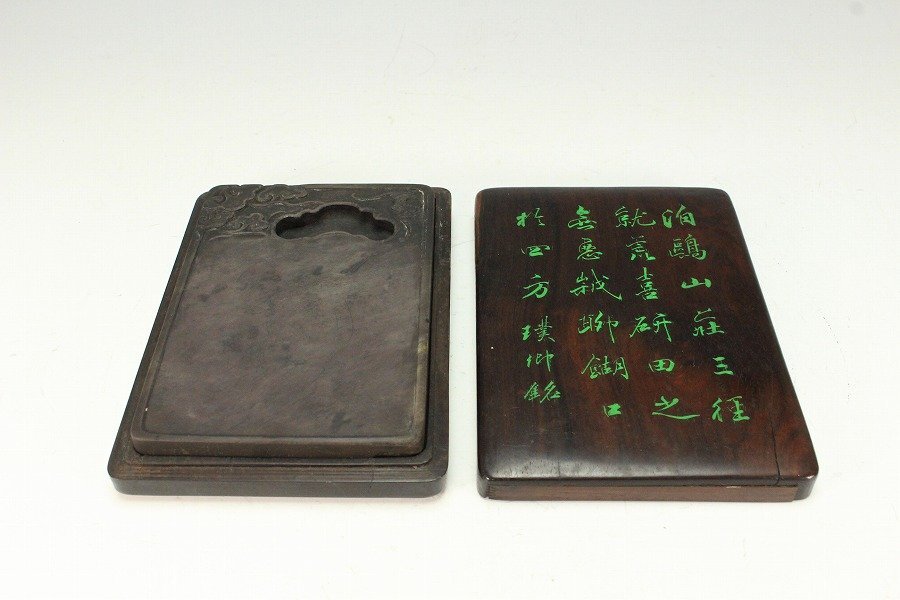 泊鷗山莊三徑
就荒喜研田之
無惡歲聊餬口
於四方 璞卿銘